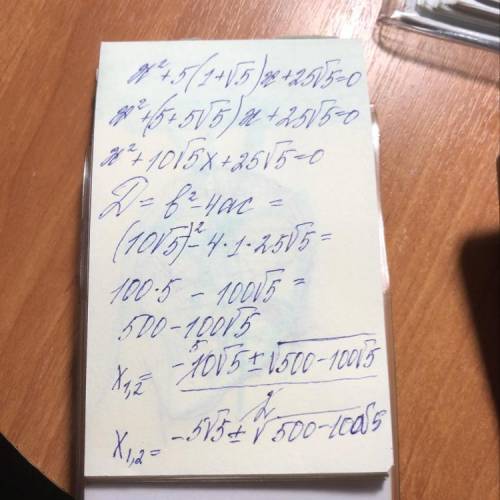 x² + 5(1+√5)x + 25√5=0
x² + (5+5√5)x + 25√5=0
x² + 10√5x + 25√5=0
D = b² - 4ac =
(10√5)² - 4·1·25√5 =
100·5 - 100√5 =
500 - 100√5
x₁,₂ = -10√5 ± √500-100√5
5
2
x₁,₂ = -5√5 ± √500-100√5